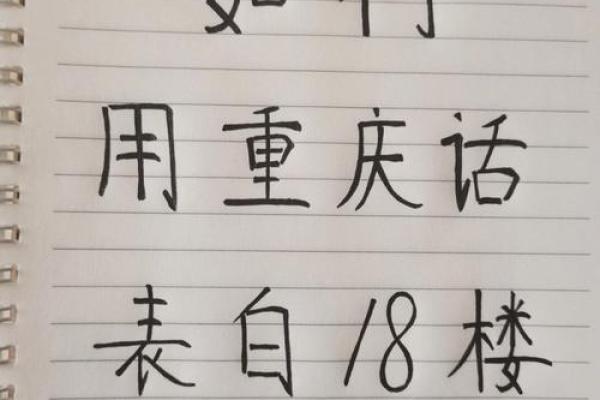 如何
用重庆话
表白18楼